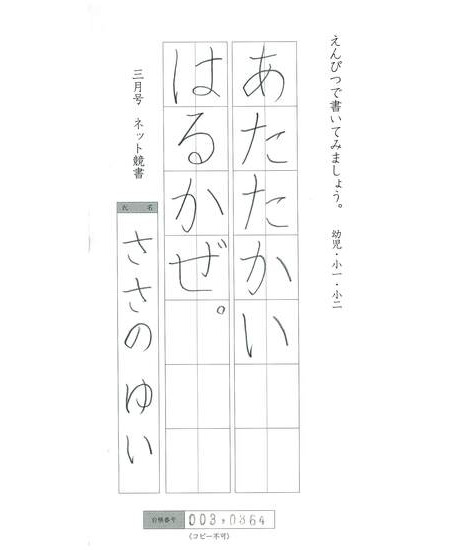 えんぴつで書いてみましょう。 幼児・小一・小二
あたたかい
はるかぜ。
三月号 ネット競書
氏名
ささの ゆい
台帳番号 003,0364
(コピー不可)